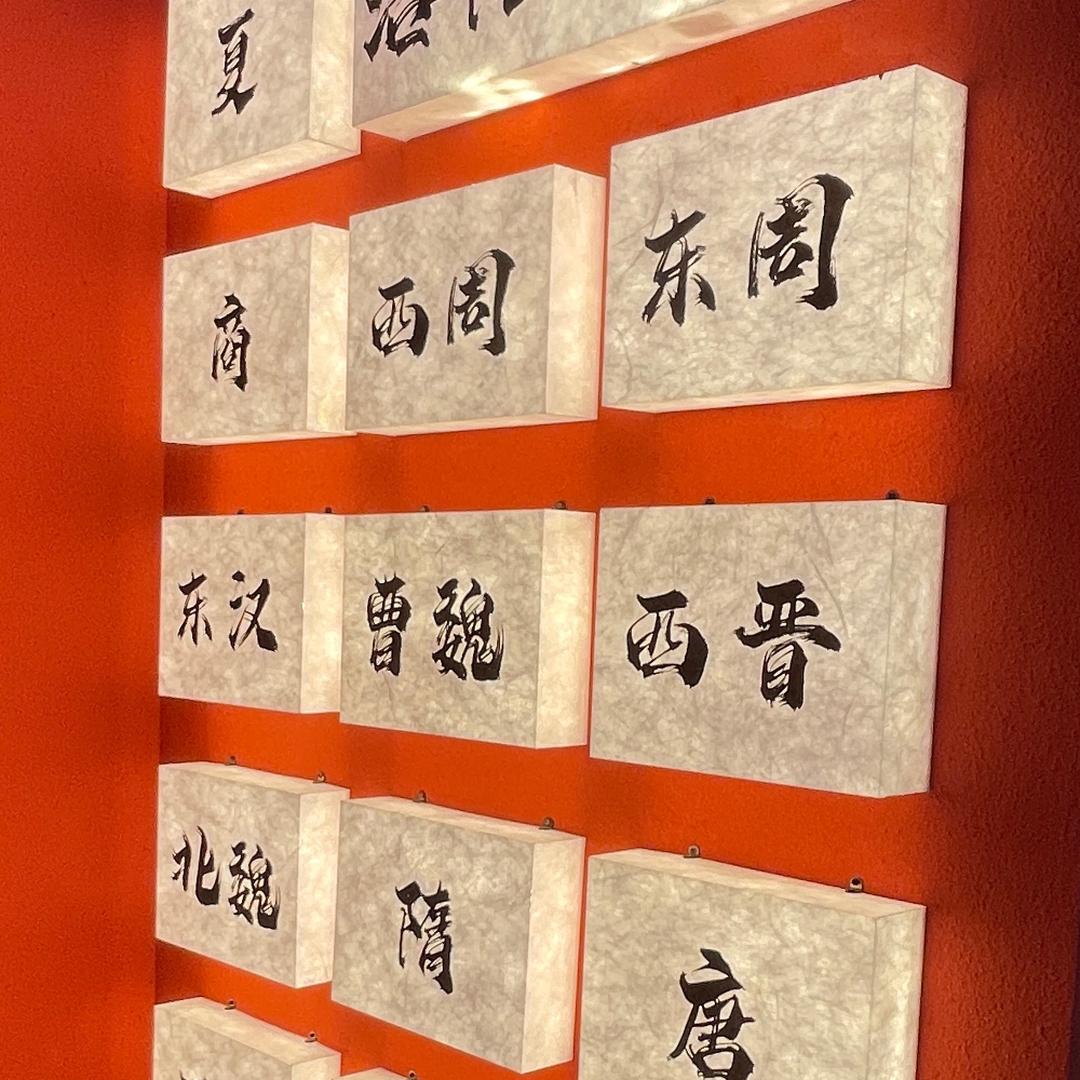 夏
商
西周
东周
东汉
曹魏
西晋
北魏
隋
唐